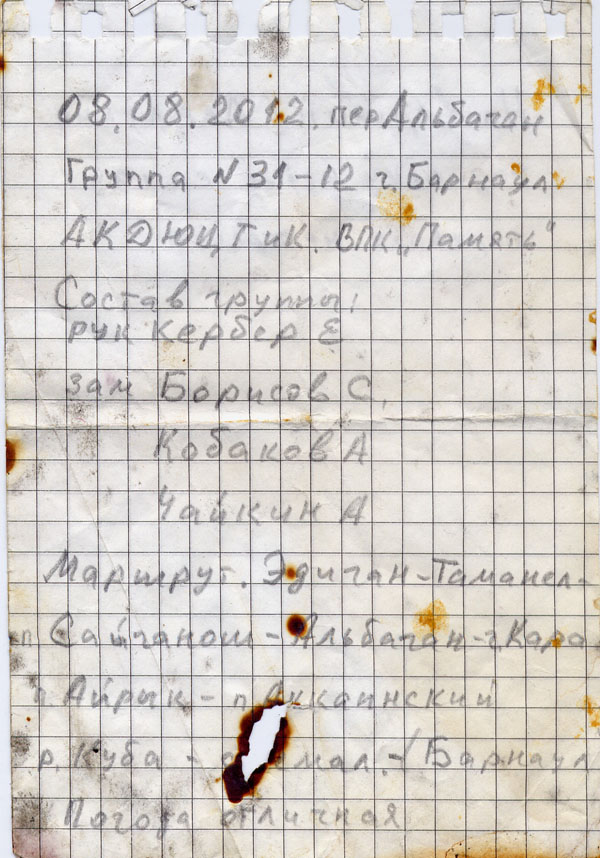 08.08.2012. пер Альбаган
Группа N 31-12 г. Барнаул
АКДЮЦТиК. ВПК „Память"
Состав группы:
рук Кербер Е
зам Борисов С.
Кобаков А
Чайкин А
Маршрут. Эдиган-Таманел-
п. Сайганош-Альбаган-г. Кара
п. Айрык - п. Аккаинский
р. Куба - мал. - Барнаул
Погода отличная